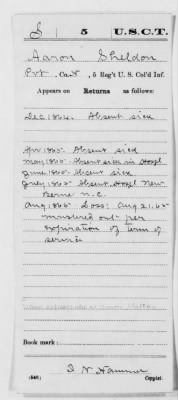 S 5 U.S.C.T.
Aaron Sheldon
Pvt, Co. , 5 Reg't U. S. Col'd Inf.
Appears on Returns as follows:
Dec 1864. Absent sick
Apr 1865. Absent sick
May 1865 Absent sick in Hospl
June 1865. Absent sick
July 1865 Absent Hospl New
Berne N.C.
Aug 1865 Loss: Aug. 21. 65
mustered out per
expiration of term of
service
Book mark:
(546) Copyist.